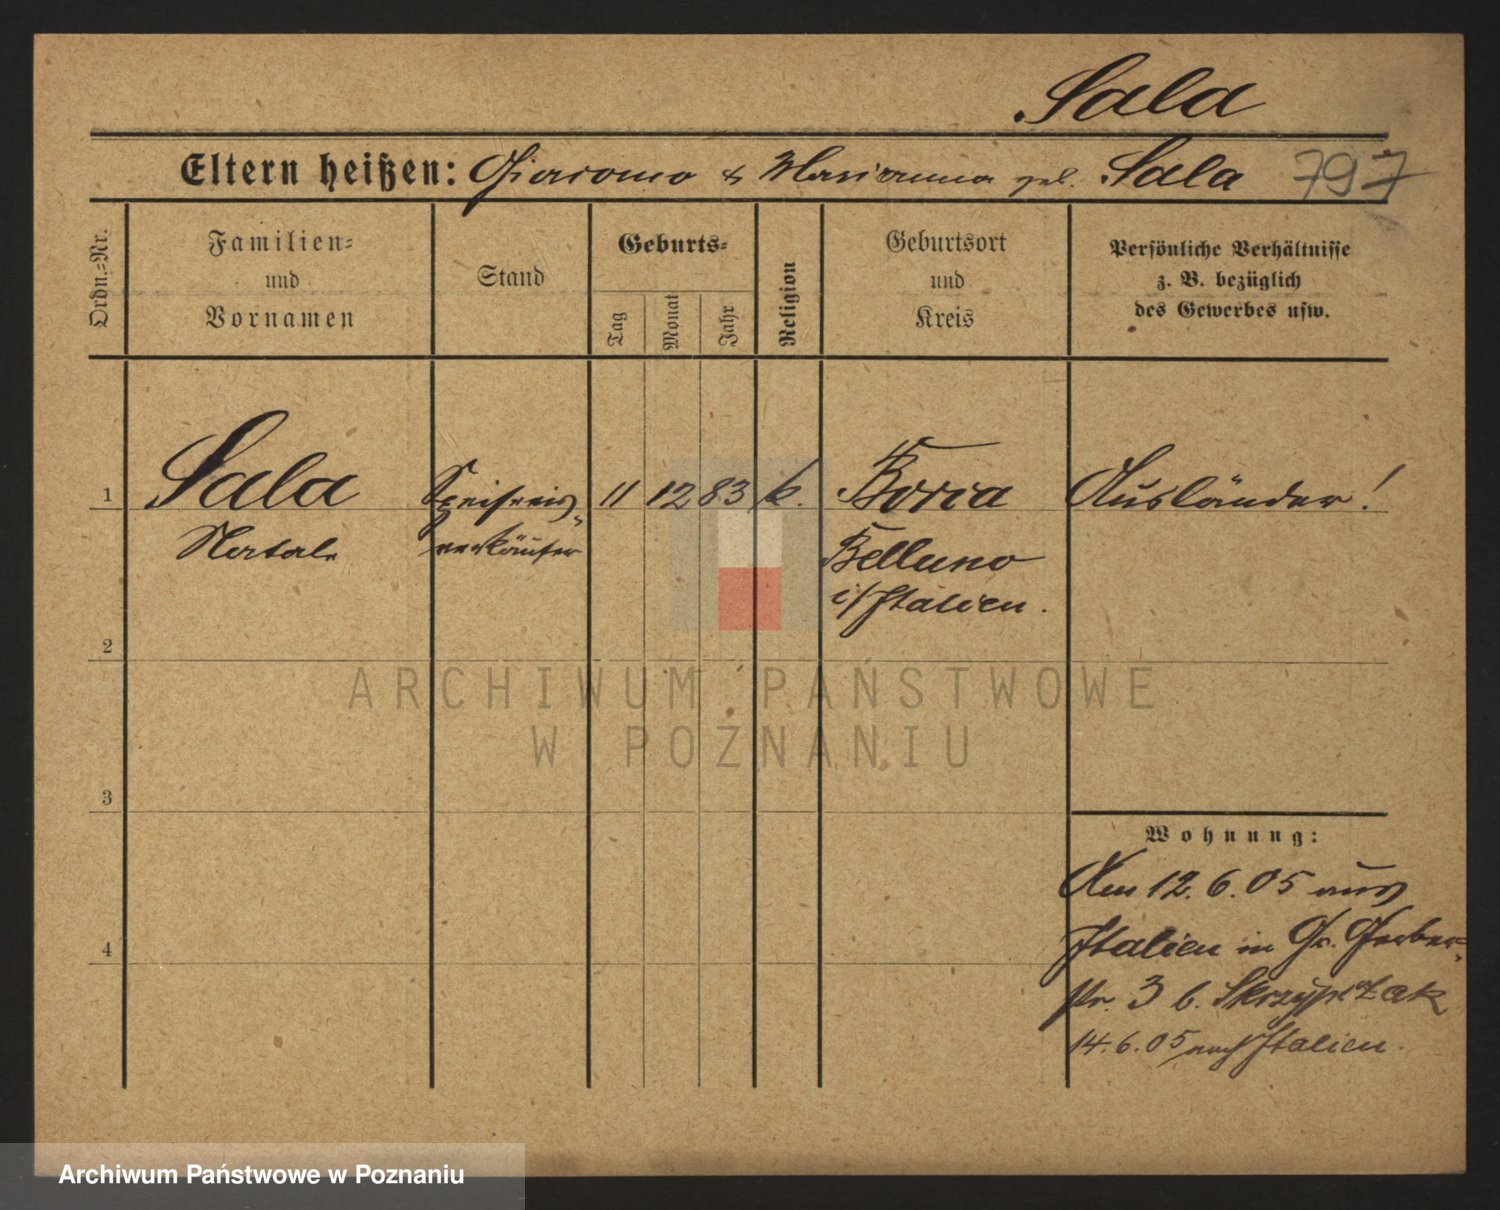 Sala
Eltern heißen: Giacomo & Marianna geb. Sala 797
Ordn.=Nr.
Familien=
und
Vornamen
Stand
Geburts=
Tag
Monat
Jahr
Religion
Geburtsort
und
Kreis
Persönliche Verhältnisse
z. B. bezüglich
des Gewerbes usw.
1 Sala Speiseeis= 11 12 83 k. Boria Ausländer!
Natale verkäufer Belluno
i/Italien.
2
3
4
Wohnung:
Am 12. 6. 05 aus
Italien in Gr. Gerber=
str. 3 b. Skrzypczak
14. 6. 05 nach Italien.
ARCHIWUM PAŃSTWOWE
W POZNANIU
Archiwum Państwowe w Poznaniu